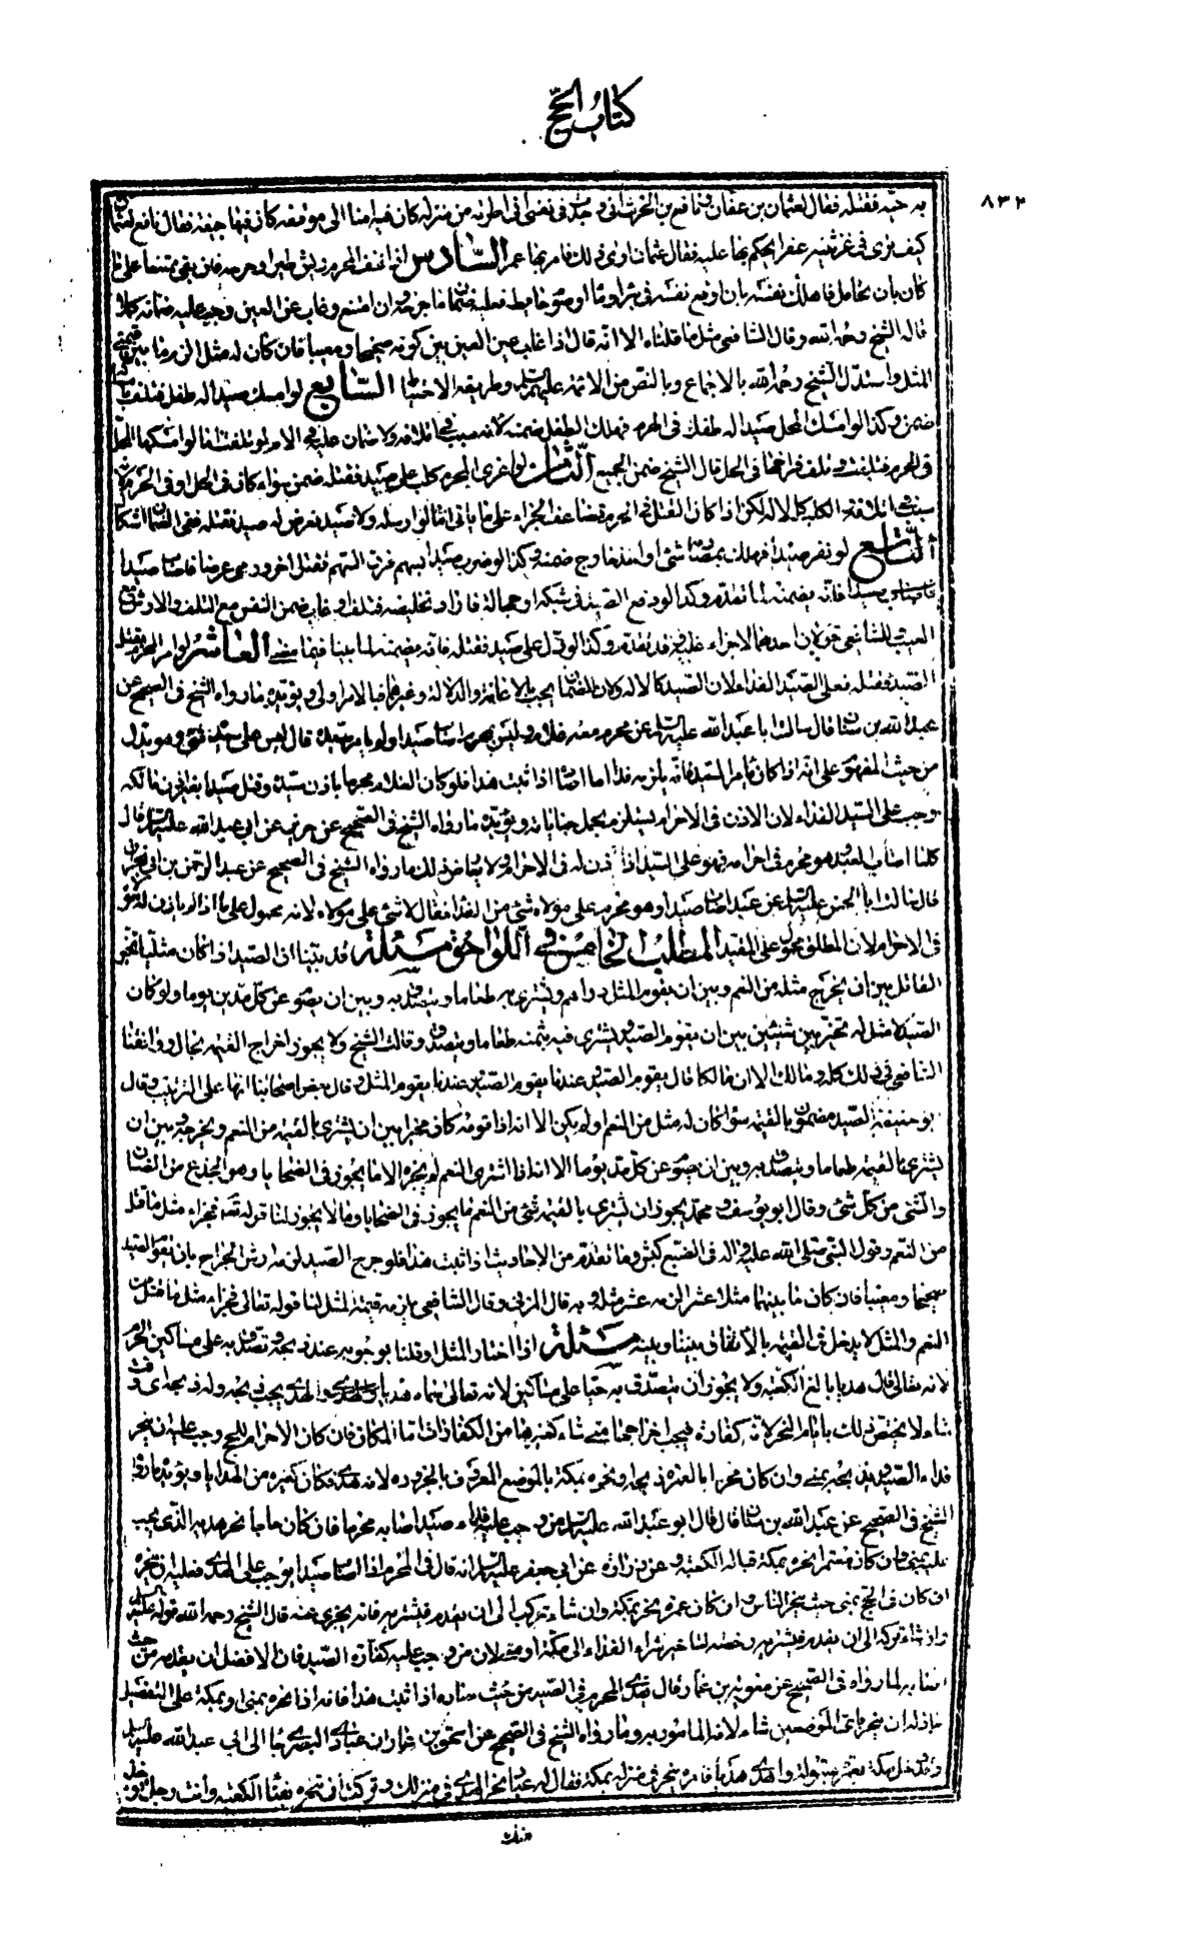 كتاب الحج
٨٣٢
به حية فقتله فقال لعثمان بن عفان ونافع بن الحرث انى وجدت فى نفسى انى اطرته من منزله كان فيه امنا الى موقفه كان فيها حتفه فقال نافع لعثمان
كيف ترى فى عز ثنية عفراء يحكم بها عليه فقال عثمان ارى ذلك فامر بها عمر السادس اذا نتف المحرم ريش طير او حرمه فان بقى ممتنعا على ما
كان بان تحامل فاهلك نفسه بان اوقع نفسه فى بئر او ماء او صدم حايط فعليه ضمانها اجزه وان امتنع وغاب عن العين وجب عليه ضمانه كملا
قاله الشيخ رحمه الله وقال الشافعى مثل ما قلناه الا انه قال اذا غاب عن العين بين كونه صحيحا ومعيبا فان كان له مثل الزمه ما بين قيمتى
المثل واستدل الشيخ رحمه الله بالاجماع وبالنص من الائمة عليهم السلام وطريقة الاحتياط السابع لو امسك صيدا له طفل فتلف بامساكه
ضمن وكذا لو امسك المحل صيدا له طفل فى الحرم فهلك الطفل ضمنه لانه سبب فى اتلافه ولا ضمان عليه فى الام لو تلفت اما لو امسكها المحل
فى الحرم فتلفت وتلف فراخها فى الحل قال الشيخ ضمن الجميع الثامن لو اغرى المحرم كلبا على صيد فقتله ضمن سواء كان فى الحل او فى الحرم لانه
سبب فى اتلافه الكلب كالالة لكن اذا كان القتل فى الحرم تضاعف الجزاء على ما ياتى اما لو ارسله ولا صيد فعرض له صيد فقتله ففى الضمان اشكال
التاسع لو نفر صيدا فهلك بمصادمة شئ او اخذه جارح ضمنه وكذا لو ضرب صيدا بسهم فمرق السهم فقتل اخر ودمى عرضا فاصاب صيدا
صيدا فانه يضمنه لما تقدم وكذا لو وقع الصيد فى شبكة او حبالة فاراد تخليصه فتلف او عاب ضمن النفس مع التلف والارش مع
العيب للشافعى قولان احدهما لا جزاء عليه وقد تقدم وكذا لو دل على صيد فقتله فانه يضمنه لما بينا فيما مضى العاشر لو امر المحرم بقتل
الصيد فقتله فعلى السيد الفداء لان الصيد كالالة ولان الضمان يجب بالاعانة والدلالة وغيرهما فبالامر اولى ويؤيده ما رواه الشيخ فى الصحيح عن
عبد الله بن سنان قال سالت ابا عبد الله عليه السلام عن محرم معه غلام وليس بمحرم اصاب صيدا ولم يامره سيده قال ليس على سيده شئ وهو يدل
من حيث المفهوم على انه اذا كان امر السيد فانه يلزمه فداء ما اصاب اذا ثبت هذا فلو كان الغلام محرما باذن سيده وقتل صيدا بغير اذن مالكه
وجب على السيد الفداء لان الاذن فى الاحرام يستلزم تحمل جناياته ويؤيده ما رواه الشيخ فى الصحيح عن حريز عن ابى عبد الله عليه السلام قال
كلما اصاب العبد وهو محرم فى احرامه فهو على السيد اذا اذن له فى الاحرام ولا يعارض ذلك ما رواه الشيخ فى الصحيح عن عبد الرحمن بن ابى نجران
قال سالت ابا الحسن عليه السلام عن عبد اصاب صيدا وهو محرم على مولاه شئ من الفداء فقال لا شئ على مولاه لانه محمول على ما اذا لم ياذن له مولاه
فى الاحرام لان المطلق محمول على المقيد المطلب الخامس فى اللواحق مسئلة قد بينا ان الصيد اذا كان مثليا تخير
القاتل بين ان يخرج مثله من النعم وبين ان يقوم المثل دراهم ويشترى به طعاما ويتصدق به وبين ان يصوم عن كل مدين يوما ولو كان
الصيد لا مثل له تخير بين شيئين بين ان يقوم الصيد يشترى فيه بثمنه طعاما ويتصدق وقال الشيخ ولا يجوز اخراج القيمة بحال ووافقنا
الشافعى فى ذلك كله ومالك الا ان مالكا قال يقوم الصيد وعندنا يقوم المثل وقال بعض اصحابنا انها على الترتيب وقال
بو حنيفة الصيد مضمون بالقيمة سواء كان له مثل من النعم او لم يكن الا انه اذا قومه كان مخيرا بين ان يشترى بالقيمة من النعم ويخرجه وبين ان
يشترى بالقيمة طعاما ويتصدق به وبين ان يصوم عن كل مد يوما الا انه اذا اشترى النعم لم يجزه الا ما يجوز فى الضحايا وهو الجذع من الضان
والثنى من كل شئ وقال ابو يوسف ومحمد يجوز ان يشترى بالقيمة شئ من النعم ما يجوز فى الضحايا وما لا يجوز لنا قوله تعالى فجزاء مثل ما قتل
من النعم وقول النبى صلى الله عليه واله فى الضبع كبش وما تقدم من الاحاديث اذا ثبت هذا فلو جرح الصيد لزمه ارش الجراح بان يقوم الصيد
صحيحا ومعيبا فان كان ما بينهما مثلا عشر الزمه عشر مثله وبه قال المزنى وقال الشافعى يلزمه قيمة المثل لنا قوله تعالى فجزاء مثل ما قتل من
النعم والمثل لا يدخل فى القيمة بالاتفاق بيننا وبينه مسئلة اذا اختار المثل وقلنا بوجوبه عنده ذبحه وتصدق به على مساكين الحرم
لانه تعالى قال هديا بالغ الكعبة ولا يجوز ان يتصدق به حيا على مساكين لانه تعالى سماه هديا والهدى يجب ذبحه وله ذبحه اى وقت
شاء لا يختص ذلك بايام النحر لانه كفارة فيجب اخراجها متى شاء كغيرها من الكفارات اما المكان فان كان الاحرام للحج وجب عليه ان ينحر
فداء الصيد ويذبحه بمنى وان كان محرما بالعمرة ذبحه او نحره بمكة بالموضع المعروف بالحزورة لانه هدى فكان كغيره من الهدايا ويؤيده ما رواه
الشيخ فى الصحيح عن عبد الله بن سنان قال قال ابو عبد الله عليه السلام من وجب عليه فداء صيد اصابه محرما فان كان حاجا نحر هديه الذى يجب
عليه بمنى وان كان معتمرا نحره بمكة قبالة الكعبة وعن زرارة عن ابى جعفر عليه السلام انه قال فى المحرم اذا اصاب صيدا يوجب على الهدى فعليه ان ينحره
ان كان فى الحج بمنى حيث ينحر الناس وان كان عمرة نحر بمكة وان شاء تركه الى ان يقدم فيشتريه فانه يجزى عنه قال الشيخ رحمه الله قوله عليه السلام
وان شاء تركه الى ان يقدم فيشتريه رخصة لتاخير شراء الفداء الى مكة او منى لان من وجب عليه كفارة الصيد فان الافضل ان يفديه من حيث
اصابه لما رواه فى الصحيح عن معوية بن عمار قال يفدى المحرم فداء الصيد من حيث صاده اذا ثبت هذا فانه اذا نحره بمنى او بمكة على التفصيل
جاز له ان ينحر باى الموضعين شاء لانه المامور به وما رواه الشيخ فى الصحيح عن اسحق بن عمار ان عباد البصرى جاء الى ابى عبد الله عليه السلام
وقد دخل مكة بعمرة مبتولة واهدى هديا فامر به فنحر فى منزله بمكة فقال له عباد نحرت الهدى فى منزلك وتركت ان تنحره بفناء الكعبة وانت رجل يؤخذ
منك